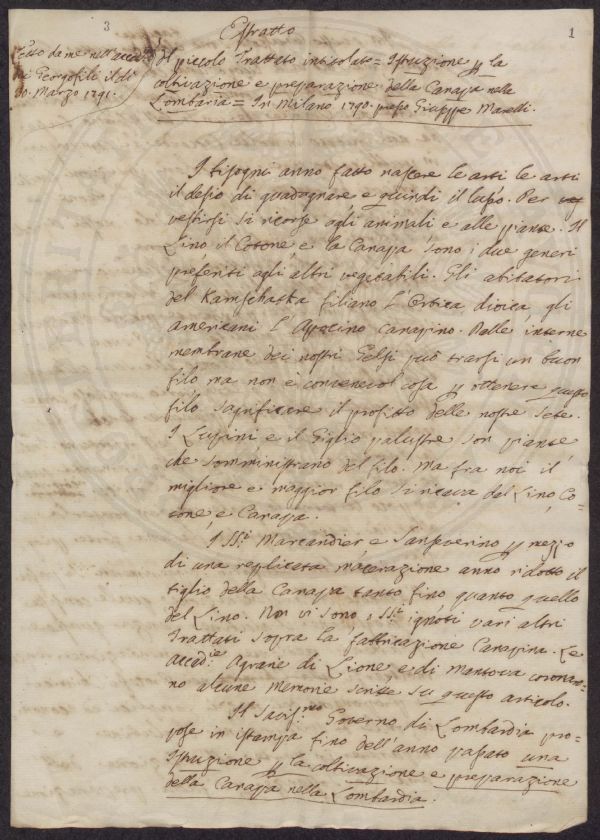 3
1
Estratto
Letto da me nell'accad.
dei Georgofili il dì
30. Marzo 1791.
Il piccolo Trattato intitolato = Istruzione p la
coltivazione e preparazione della Canapa nella
Lombardia = In Milano 1790. presso Giuseppe Marelli.
I bisogni anno fatto nascere le arti le arti
il desio di guadagnare e quindi il lusso. Per
vestirsi si ricorse agli animali e alle piante. Il
Lino il Cotone e la Canapa sono i due generi
preferiti agli altri vegetabili. Gli abitatori
del Kamschatka filano l'Ortica dioica, gli
americani l'Apocino canapino. Dalle interne
membrane dei nostri Gelsi può trarsi un buon
filo ma non è convenevol cosa p ottenere questo
filo sagrificare il profitto delle nostre sete.
I Lupini e il Giglio palustre son piante
che somministrano del filo. Ma fra noi il
migliore e maggior filo si ricava dal Lino Co=
tone e Canapa.
I SS.i Marcandier e Sanseverino p mezzo
di una replicata macerazione anno ridotto il
tiglio della Canapa tanto fino quanto quello
del Lino. Non vi sono, SS.i ignoti vari altri
Trattati sopra la fabbricazione Canapina. Le
accad.ie Agrarie di Lione e di Mantova coronaro=
no alcune Memorie scritte su questo articolo.
Il Saviss.mo Governo di Lombardia pro=
pose in istampa fino dell'anno passato una
Istruzione p la coltivazione e preparazione
della Canapa nella Lombardia.